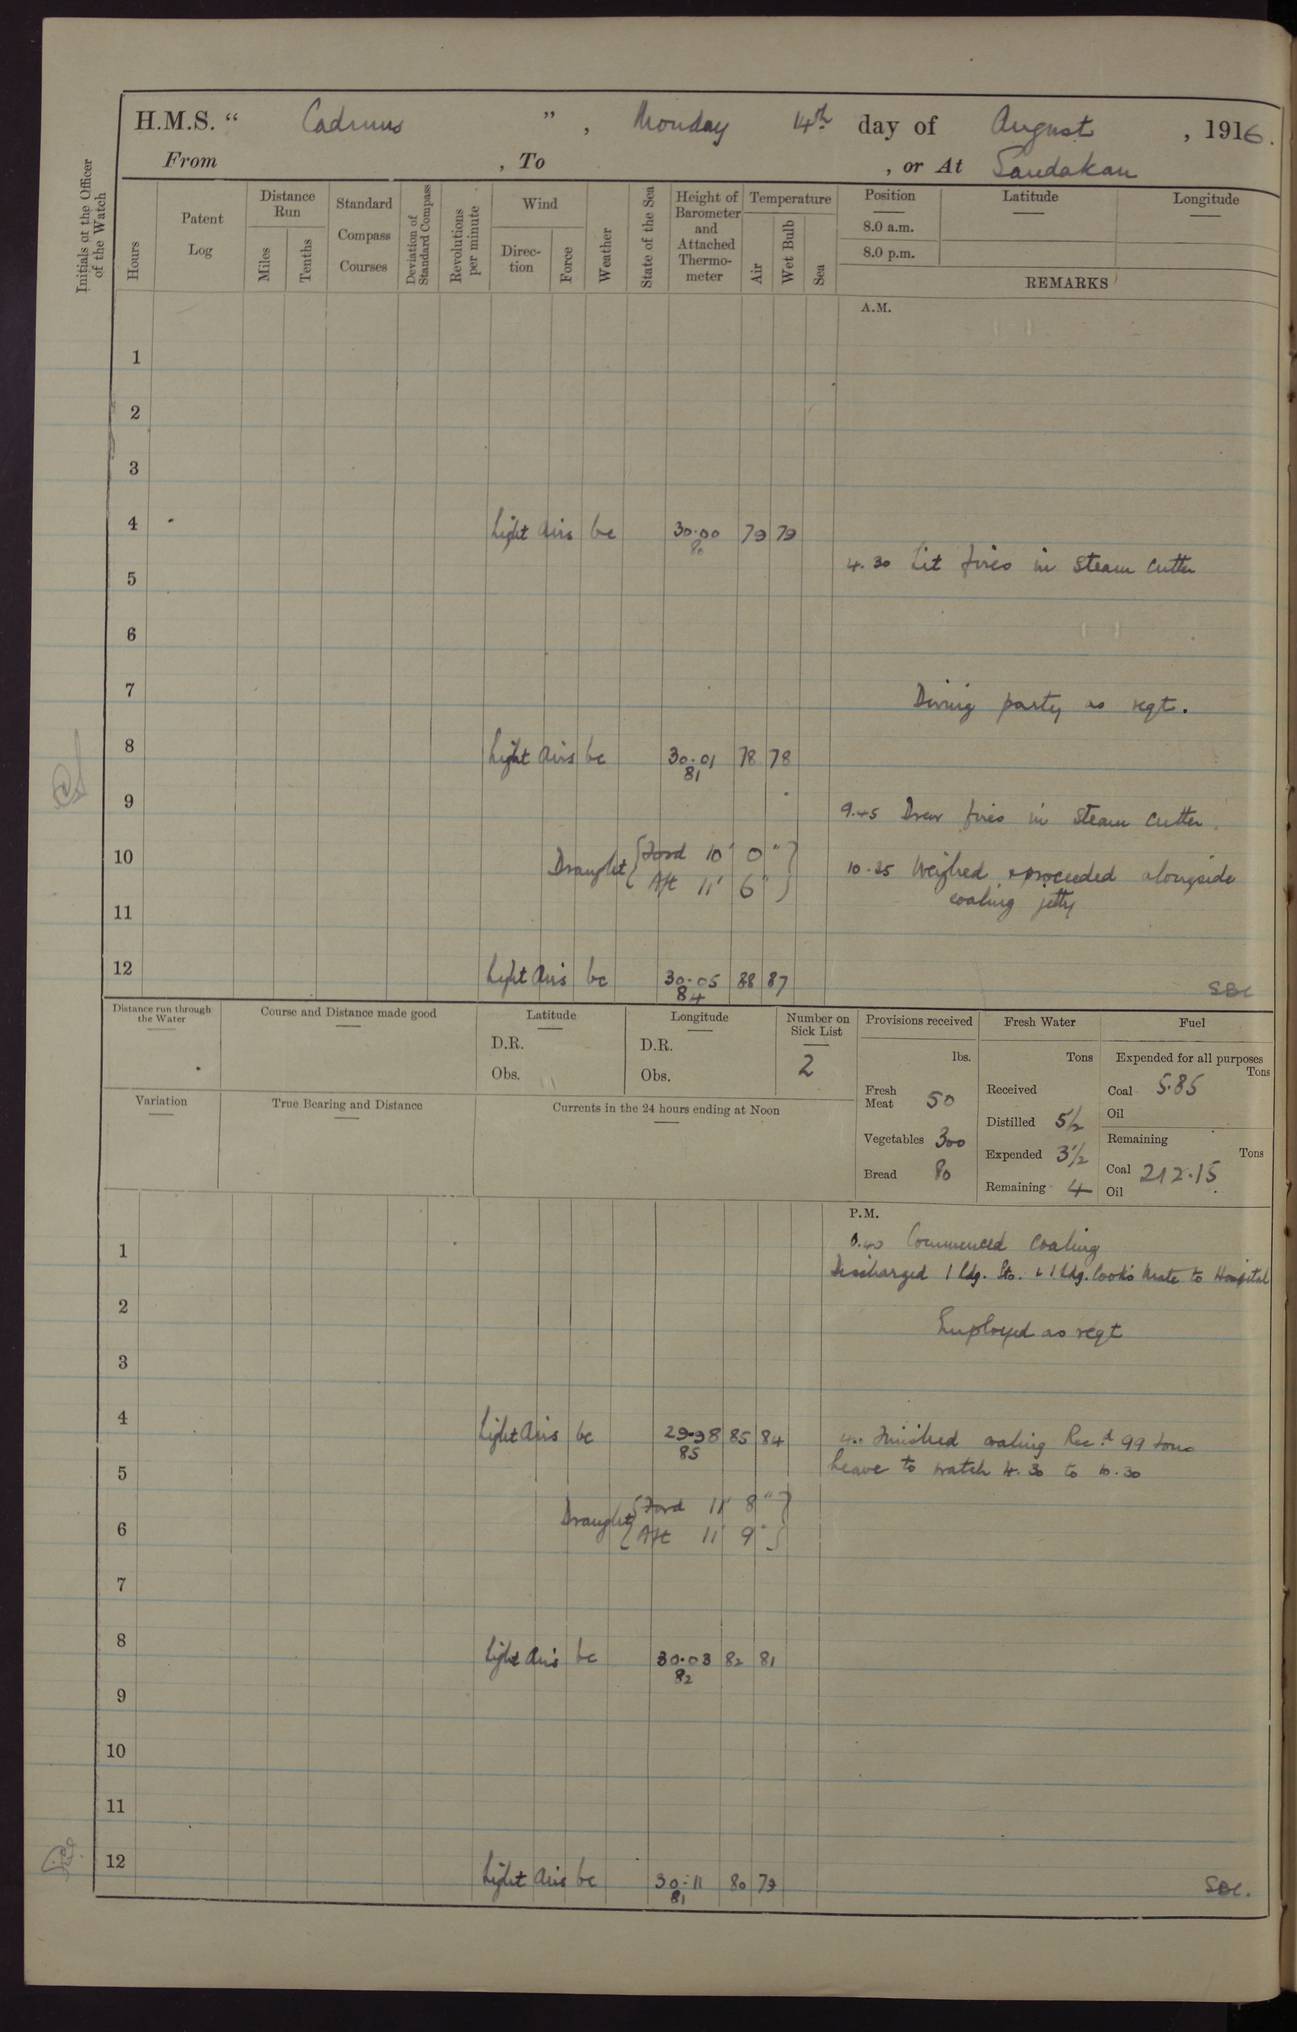 H.M.S. “ Cadmus ” , Monday 14th day of August , 1916.
From , To , or At Sandakan
Initials of the Officer of the Watch
Hours
Patent Log
Distance Run
Miles
Tenths
Standard Compass Courses
Deviation of Standard Compass
Revolutions per minute
Wind
Direc-tion
Force
Weather
State of the Sea
Height of Barometer and Attached Thermo-meter
Temperature
Air
Wet Bulb
Sea
Position Latitude Longitude
8.0 a.m.
8.0 p.m.
REMARKS
A.M.
1
2
3
4 Light airs bc 30.00 79 79
80
4.30 Lit fires in steam cutter
5
6
7
Diving party as reqt.
8 Light airs bc 30.01 78 78
81
9
9.45 Drew fires in steam cutter.
10 Draught { Ford 10' 0" }
{ Aft 11' 6" }
10.25 Weighed & proceeded alongside
coaling jetty
11
12 Light Airs bc 30.05 88 87
84
Distance run through the Water
Course and Distance made good
Latitude
D.R.
Obs.
Longitude
D.R.
Obs.
Number on Sick List
2
Variation
True Bearing and Distance
Currents in the 24 hours ending at Noon
Provisions received
lbs.
Fresh Meat 50
Vegetables 300
Bread 80
Fresh Water
Tons
Received
Distilled 5½
Expended 3½
Remaining 4
Fuel
Expended for all purposes
Tons
Coal 5.85
Oil
Remaining
Tons
Coal 212.15
Oil
P.M.
0.40 Commenced coaling
1
Discharged 1 Ldg. Sto. & 1 Ldg. Cook's Mate to Hospital
2
Employed as reqt
3
4 Light Airs bc 29.98 85 84
85
4.. Finished coaling Recd 99 tons
Leave to watch 4.30 to 10.30
5
Draught { Ford 11' 8" }
6 { Aft 11' 9" }
7
8 Light Airs bc 30.03 82 81
82
9
10
11
12 Light Airs bc 30.11 80 79
81